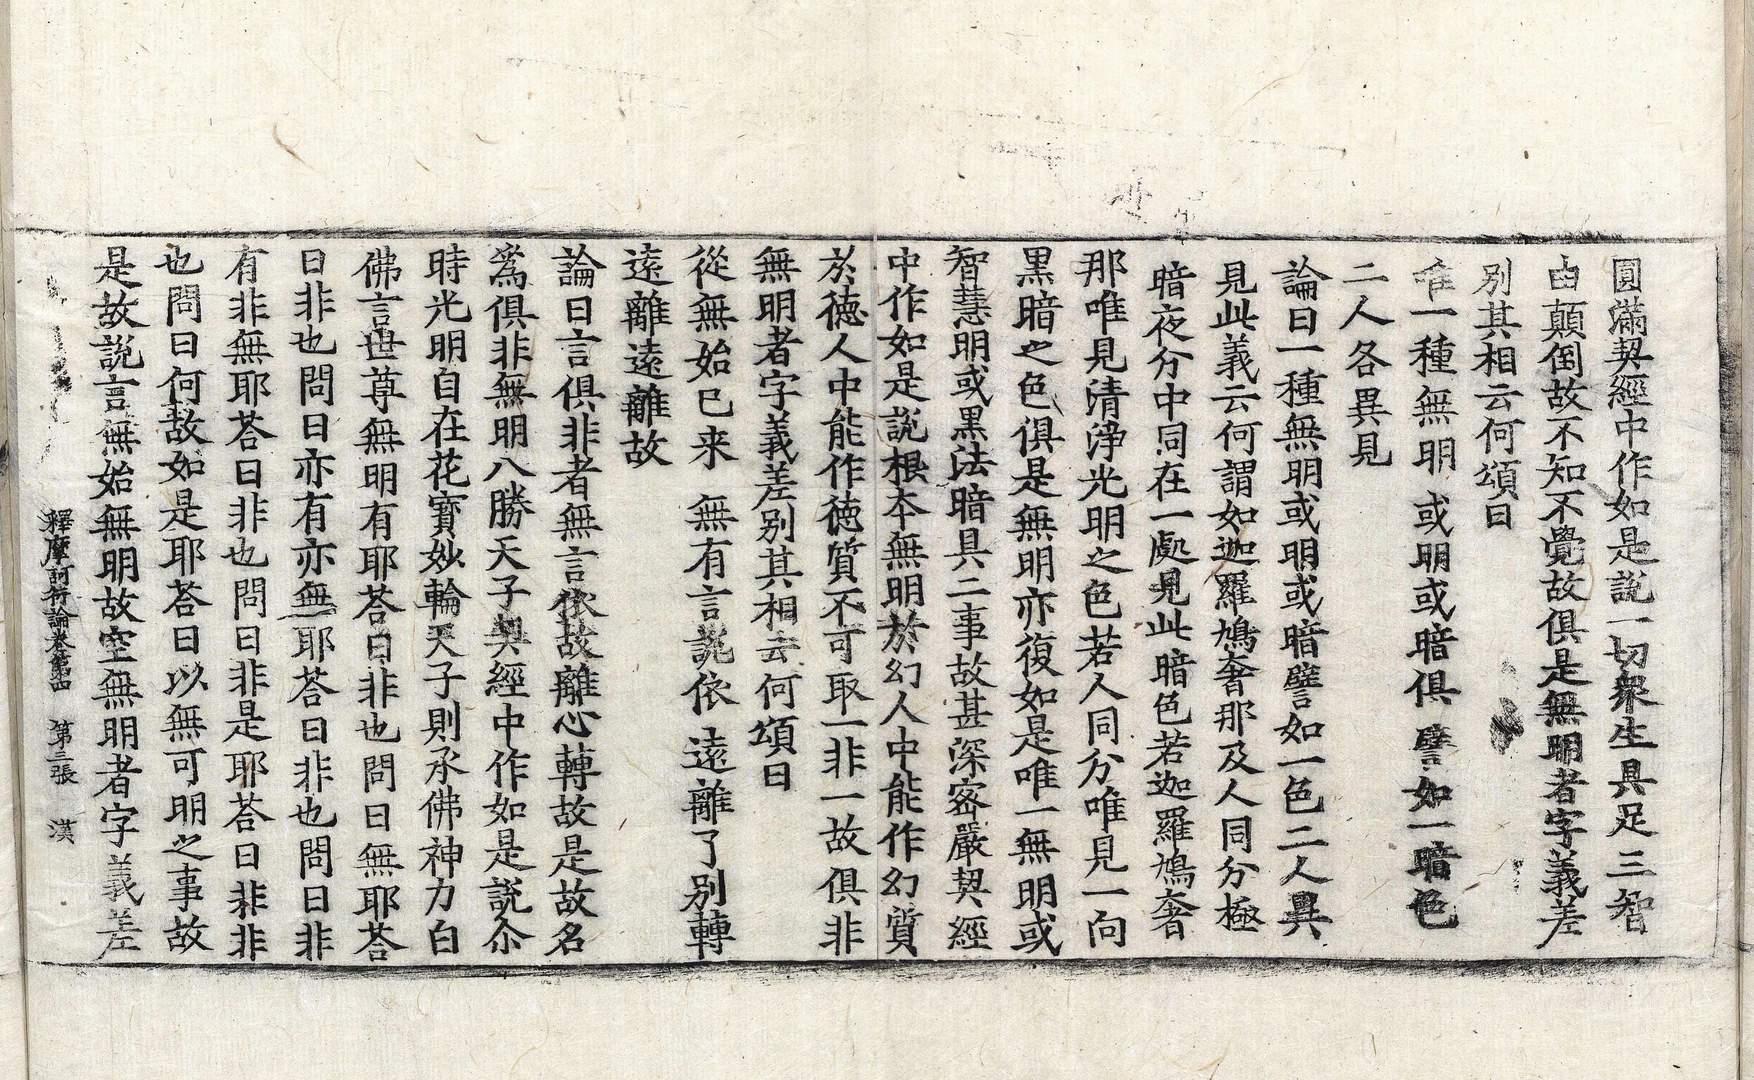 圓滿契經中作如是說一切衆生具足三智
由顛倒故不知不覺故俱是無明者字義差
別其相云何頌曰
唯一種無明 或明或暗俱 譬如一暗色
二人各異見
論曰一種無明或明或暗譬如一色二人異
見此義云何謂如迦羅鳩奢那及人同分極
暗夜分中同在一處見此暗色若迦羅鳩奢
那唯見清淨光明之色若人同分唯見一向
黑暗之色俱是無明亦復如是唯一無明或
智慧明或黑法暗具二事故甚深密嚴契經
中作如是說根本無明於幻人中能作幻質
於德人中能作德質不可取一非一故俱非
無明者字義差別其相云何頌曰
從無始已来 無有言說依 遠離了別轉
遠離遠離故
論曰言俱非者無言依故離心轉故是故名
爲俱非無明八勝天子契經中作如是說尒
時光明自在花寶妙輪天子則承佛神力白
佛言世尊無明有耶荅曰非也問曰無耶荅
曰非也問曰亦有亦無耶荅曰非也問曰非
有非無耶荅曰非也問曰非是耶荅曰非非
也問曰何故如是耶荅曰以無可明之事故
是故說言無始無明故空無明者字義差
釋摩訶衍論卷第四 第三張 漢